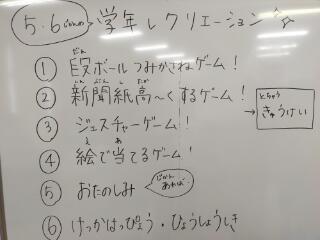 5.6じかんめ 学年レクリエーション
① 段ボールつみかさねゲーム!
だん
② 新聞紙高〜くするゲーム!
しん ぶん し たか
③ ジェスチャーゲーム!
とちゅう
きゅうけい
④ 絵で当てるゲーム!
え あ
⑤ おたのしみ
じかんあれば…
⑥ けっかはっぴょう・ひょうしょうしき